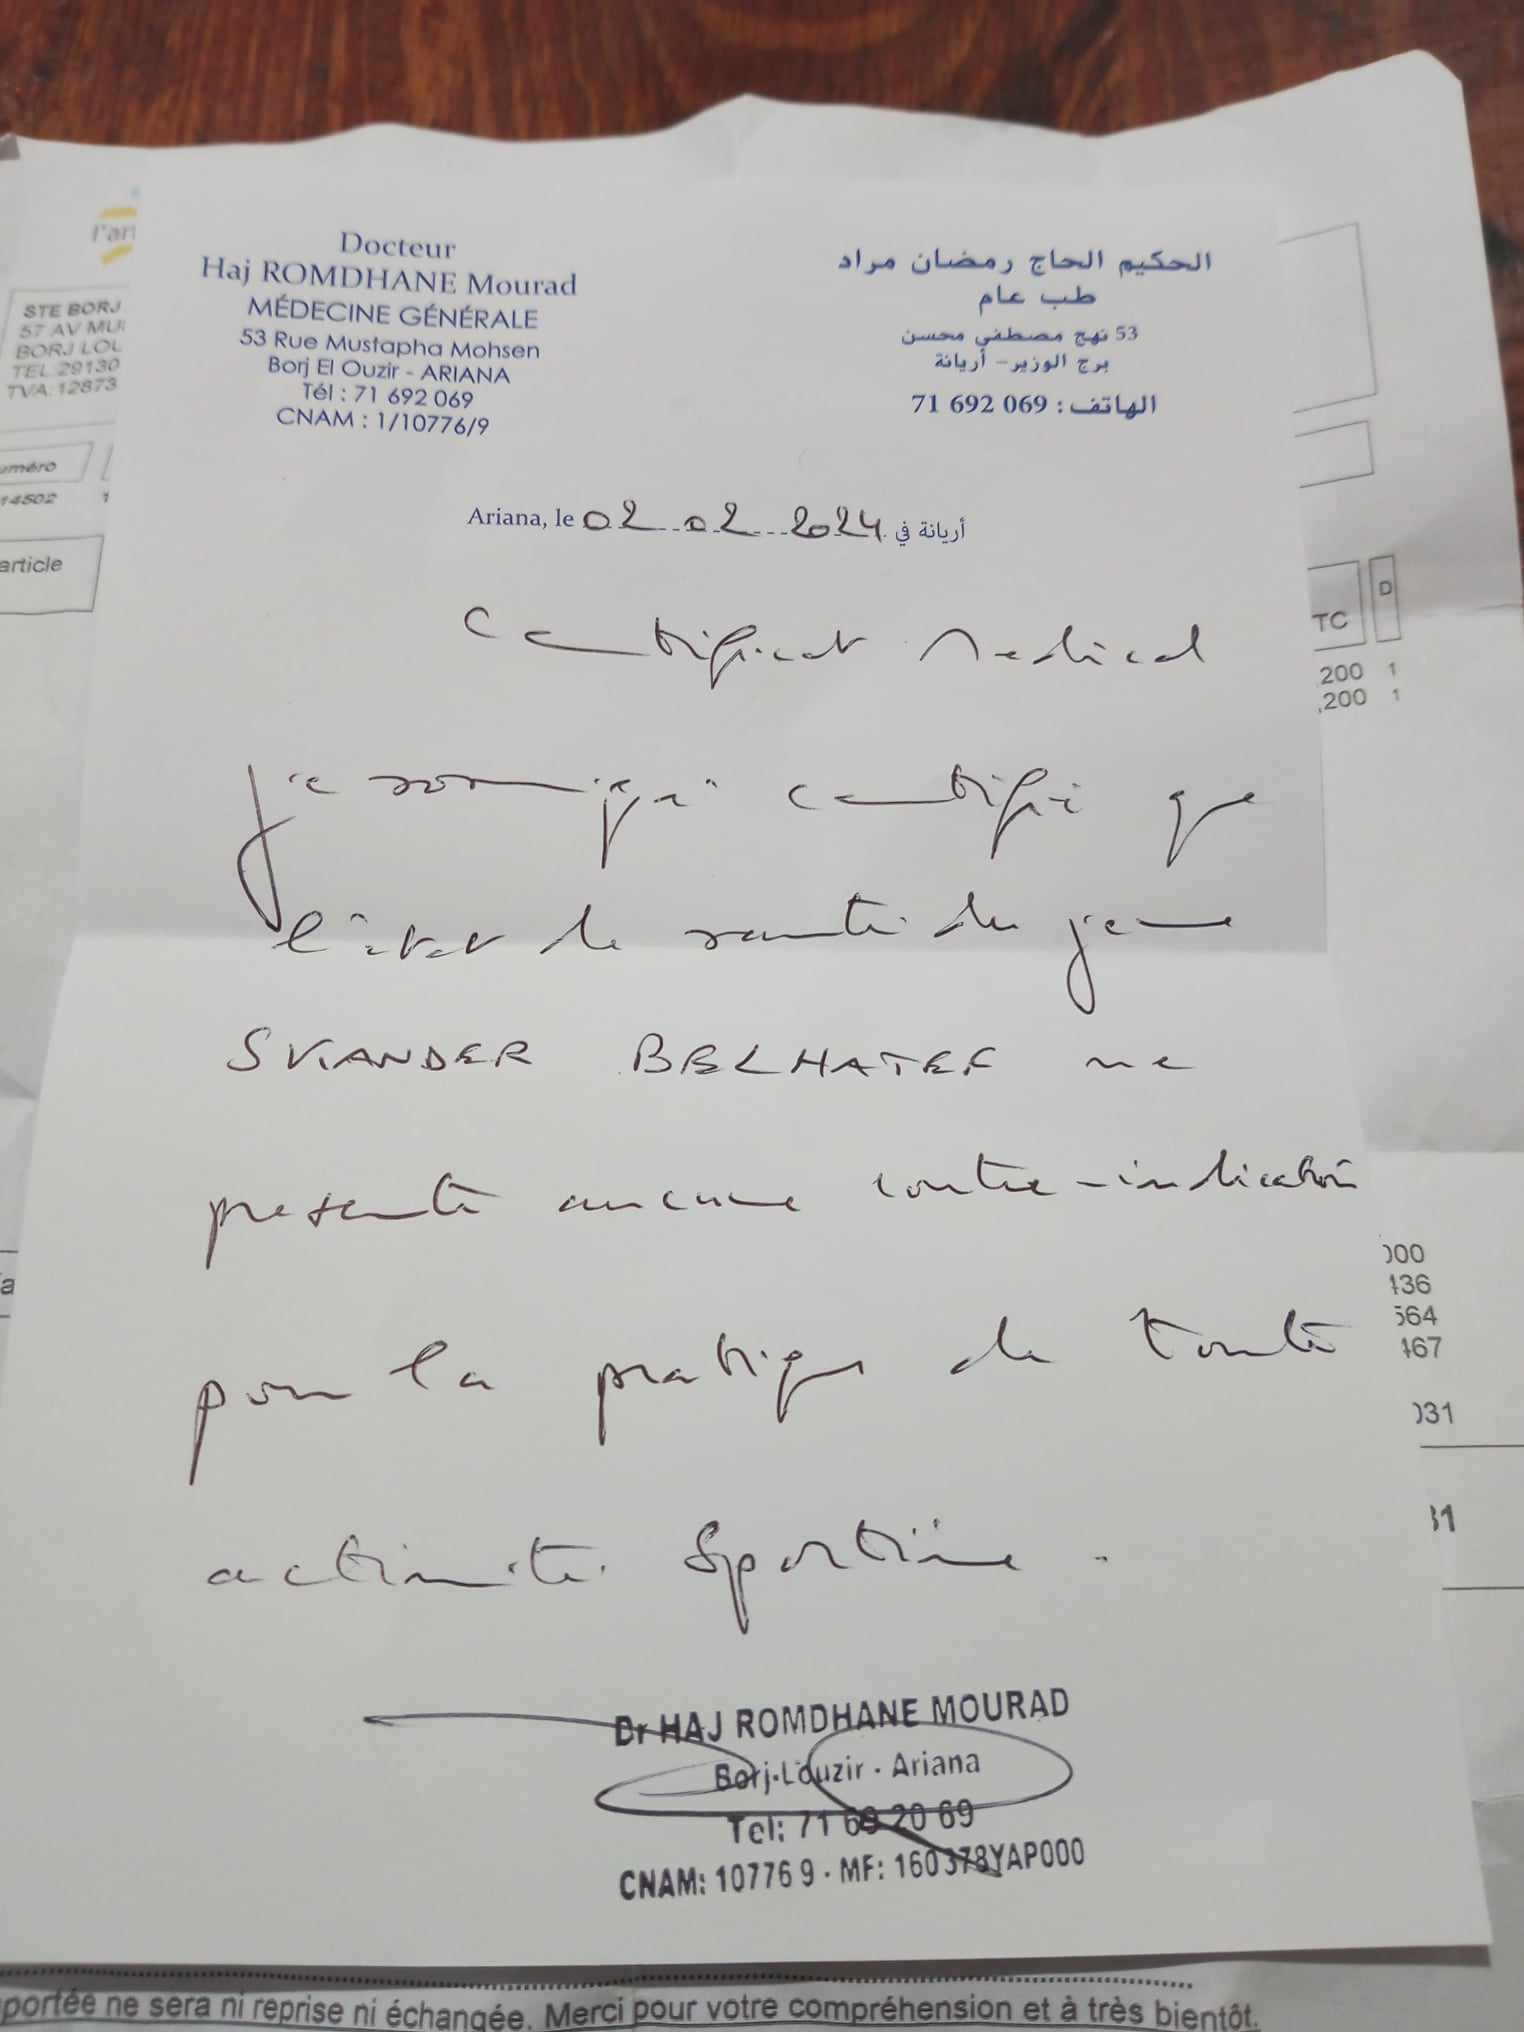 Docteur
Haj ROMDHANE Mourad
MÉDECINE GÉNÉRALE
53 Rue Mustapha Mohsen
Borj El Ouzir - ARIANA
Tél : 71 692 069
CNAM : 1/10776/9
الحكيم الحاج رمضان مراد
طب عام
53 نهج مصطفى محسن
برج الوزير - أريانة
الهاتف : 069 692 71
Ariana, le 02 02 2024 أريانة في
Certificat Medical
je soussigné certifie que
l'état de santé du jeune
SKANDER BELHATEF ne
presente aucune contre-indication
pour la pratique de toute
activité sportive.
Dr HAJ ROMDHANE MOURAD
Borj-Louzir - Ariana
Tel: 71 69 20 69
CNAM: 10776 9 - MF: 160378YAP000
l'an
STE BORJ
57 AV MU
BORJ LOU
TEL 29130
TVA: 12873
uméro
14502 1
article
TC D
,200 1
,200 1
000
436
564
467
031
31
portée ne sera ni reprise ni échangée. Merci pour votre compréhension et à très bientôt.